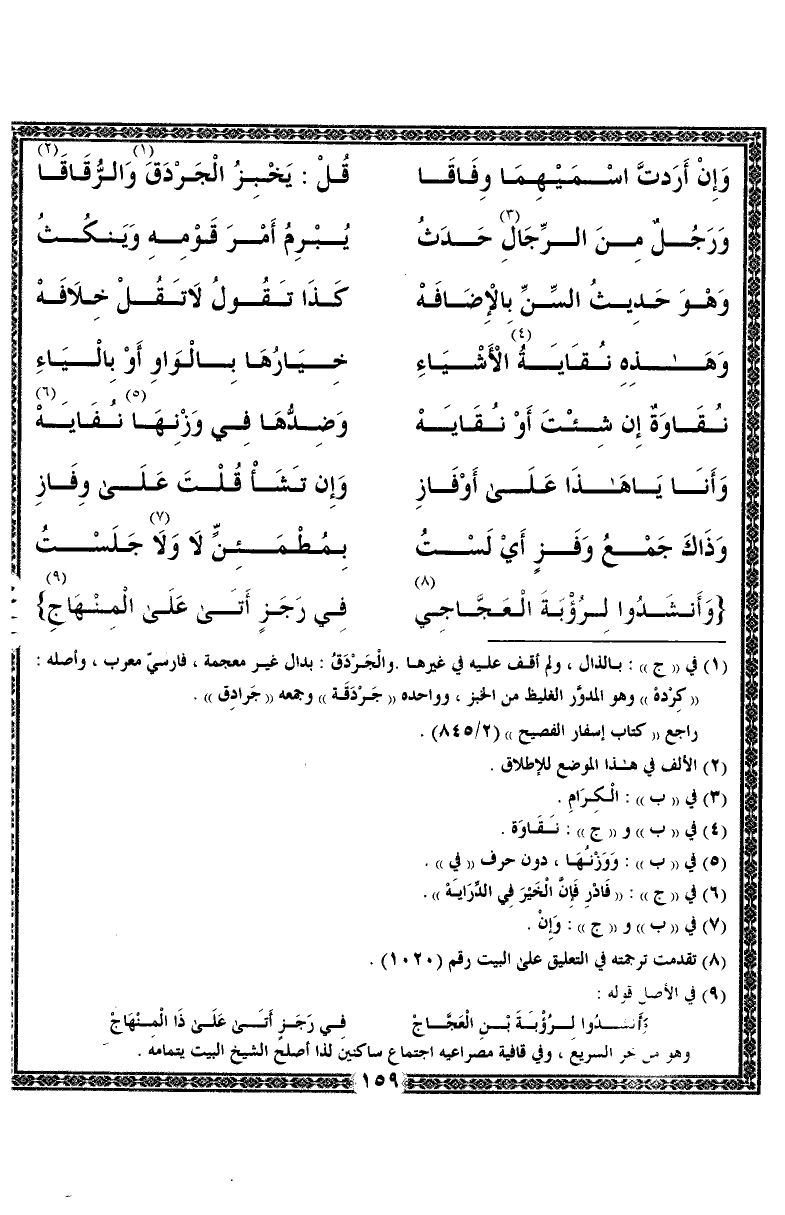 وَإِنْ أَرَدتَّ اسْمَيْهِمَا وِفَاقَا قُلْ : يَخْبِزُ الْجَرْدَقَ (١) وَالرُّقَاقَا (٢)
وَرَجُلٌ مِنَ الرِّجَالِ (٣) حَدَثُ يُبْرِمُ أَمْرَ قَوْمِهِ وَيَنكُثُ
وَهْوَ حَدِيثُ السِّنِّ بِالْإِضَافَهْ كَذَا تَقُولُ لَاتَقُلْ خِلَافَهْ
وَهَٰذِهِ نُقَايَةُ (٤) الْأَشْيَاءِ خِيَارُهَا بِالْوَاوِ أَوْ بِالْيَاءِ
نُقَاوَةٌ إِن شِئْتَ أَوْ نُقَايَهْ وَضِدُّهَا فِي وَزْنِهَا (٥) نُفَايَهْ (٦)
وَأَنَا يَاهَٰذَا عَلَىٰ أَوْفَازِ وَإِن تَشَأْ قُلْتَ عَلَىٰ وِفَازِ
وَذَاكَ جَمْعُ وَفَزٍ أَيْ لَسْتُ بِمُطْمَئِنٍّ لَا (٧) وَلَا جَلَسْتُ
{وَأَنشَدُوا لِرُؤْبَةَ الْعَجَّاجِي (٨) فِي رَجَزٍ أَتَىٰ عَلَىٰ الْمِنْهَاجِ} (٩)
(١) في « ج » : بالذال ، ولم أقف عليه في غيرها .والْجَرْدَقُ : بدال غير معجمة ، فارسيّ معرب ، وأصله :
« كِرْدَهْ » وهو المدوَّر الغليظ من الخبز ، وواحده « جَرْدَقَة » وجمعه « جَرادِق » .
راجع « كتاب إسفار الفصيح » (٨٤٥/٢) .
(٢) الألف في هـٰذا الموضع للإطلاق .
(٣) في « ب » : الْكِرَامِ .
(٤) في « ب » و « ج » : نَقَاوَة .
(٥) في « ب » : وَوَزْنُهَا ، دون حرف « في » .
(٦) في « ج » : « فَادْرِ فَإِنَّ الْخَيْرَ فِي الدِّرَايَهْ » .
(٧) في « ب » و « ج » : وَإِنْ .
(٨) تقدمت ترجمته في التعليق علىٰ البيت رقم (١٠٢٠) .
(٩) في الأصل قوله :
وَأَنشَدُوا لِرُؤْبَةَ بْنِ الْعَجَّاجْ فِي رَجَزٍ أَتَىٰ عَلَىٰ ذَا الْمِنْهَاجْ
وهو من بحر السريع ، وفي قافية مصراعيه اجتماع ساكنين لذا أصلح الشيخ البيت بتمامه .
١٥٩